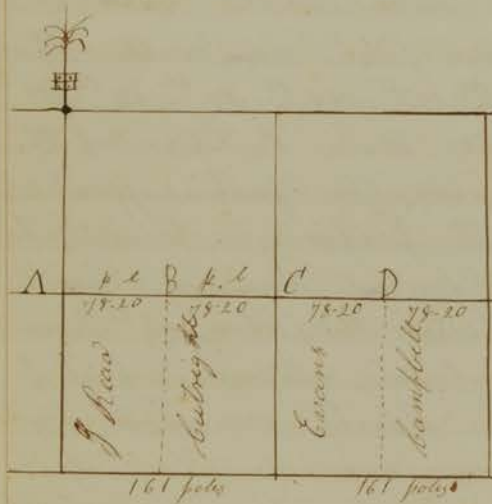 A p l B p. l C D
78-20 78-20 78-20 78-20
Cutright
Evans
Campbell
161 poles 161 poles